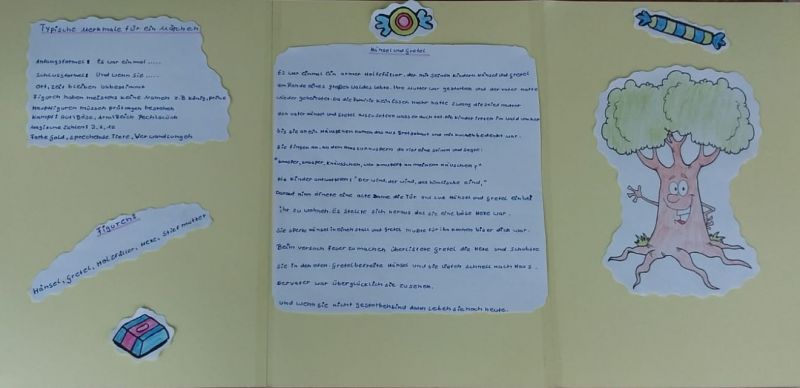 Typische Merkmale für ein Märchen
Anfangsformel: Es war einmal .....
Schlussformel: Und wenn sie .....
Ort, zeit bleiben unbestimmt
Figuren haben meistens keine Namen z.B König, prinz
Hauptfiguren müssen prüfungen bestehen
Kampf: Gut/Böse, Arm/Reich Pech/Glück
Magische Zahlen: 3, 6, 12
Farbe gold, sprechende Tiere, Verwandlungen
Figuren:
Hänsel, Gretel, Holzfäller, Hexe, Stiefmutter
Hänsel und Gretel
Es war einmal ein armer Holzfäller, der mit seinen kindern Hänsel und gretel
am Rande eines großen Waldes lebte. Ihre mutter war gestorben und der vater hatte
wieder geheiratet. Da die Familie kein essen mehr hatte zwang die stief mutter
den vater Hänsel und Gretel auszusetzen
bis sie an ein Häuschen kamen das aus Brot gebaut und mit kuchen bedeckt war.
Sie fingen an, an dem Haus zu knuspern da rief eine stimme und sagte:
"knusper, knusper, knäuschen, wer knuspert an meinem häuschen?"
Die Kinder antworteten: "Der wind, der wind, das himmlische kind."
Darauf hinn öfnete eine alte Dame die Tür und lud Hänsel und gretel ein bei
ihr zu wohnen. Es stellte sich heraus das sie eine böse Hexe war.
Sie sperte Hänsel in einen stall und gretel mußte für ihn kochen
Beim versuch feuer zu machen überlistete Gretel die Hexe und schubste
sie in den ofen. Gretel befreite Hänsel und sie liefen schnell nach Haus.
Der vater war überglücklich sie zu sehen.
Und wenn sie nicht gestorben sind dann leben sie noch heute.